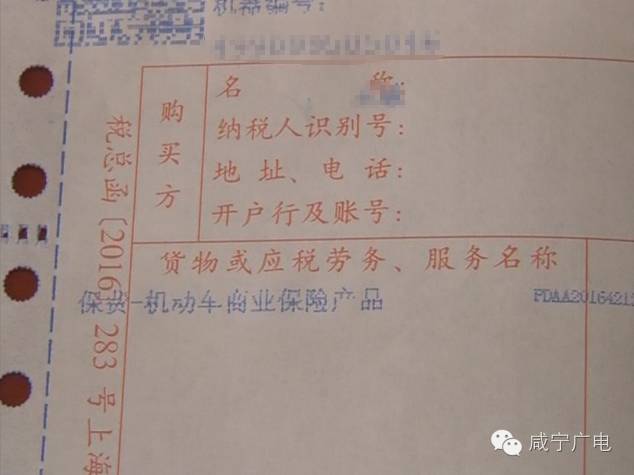 机器编号:
购买方
名 称:
纳税人识别号:
地 址、电 话:
开户行及账号:
货物或应税劳务、服务名称
保费-机动车商业保险产品 PDAA2016421
税总函〔2016〕283号上海
咸宁广电